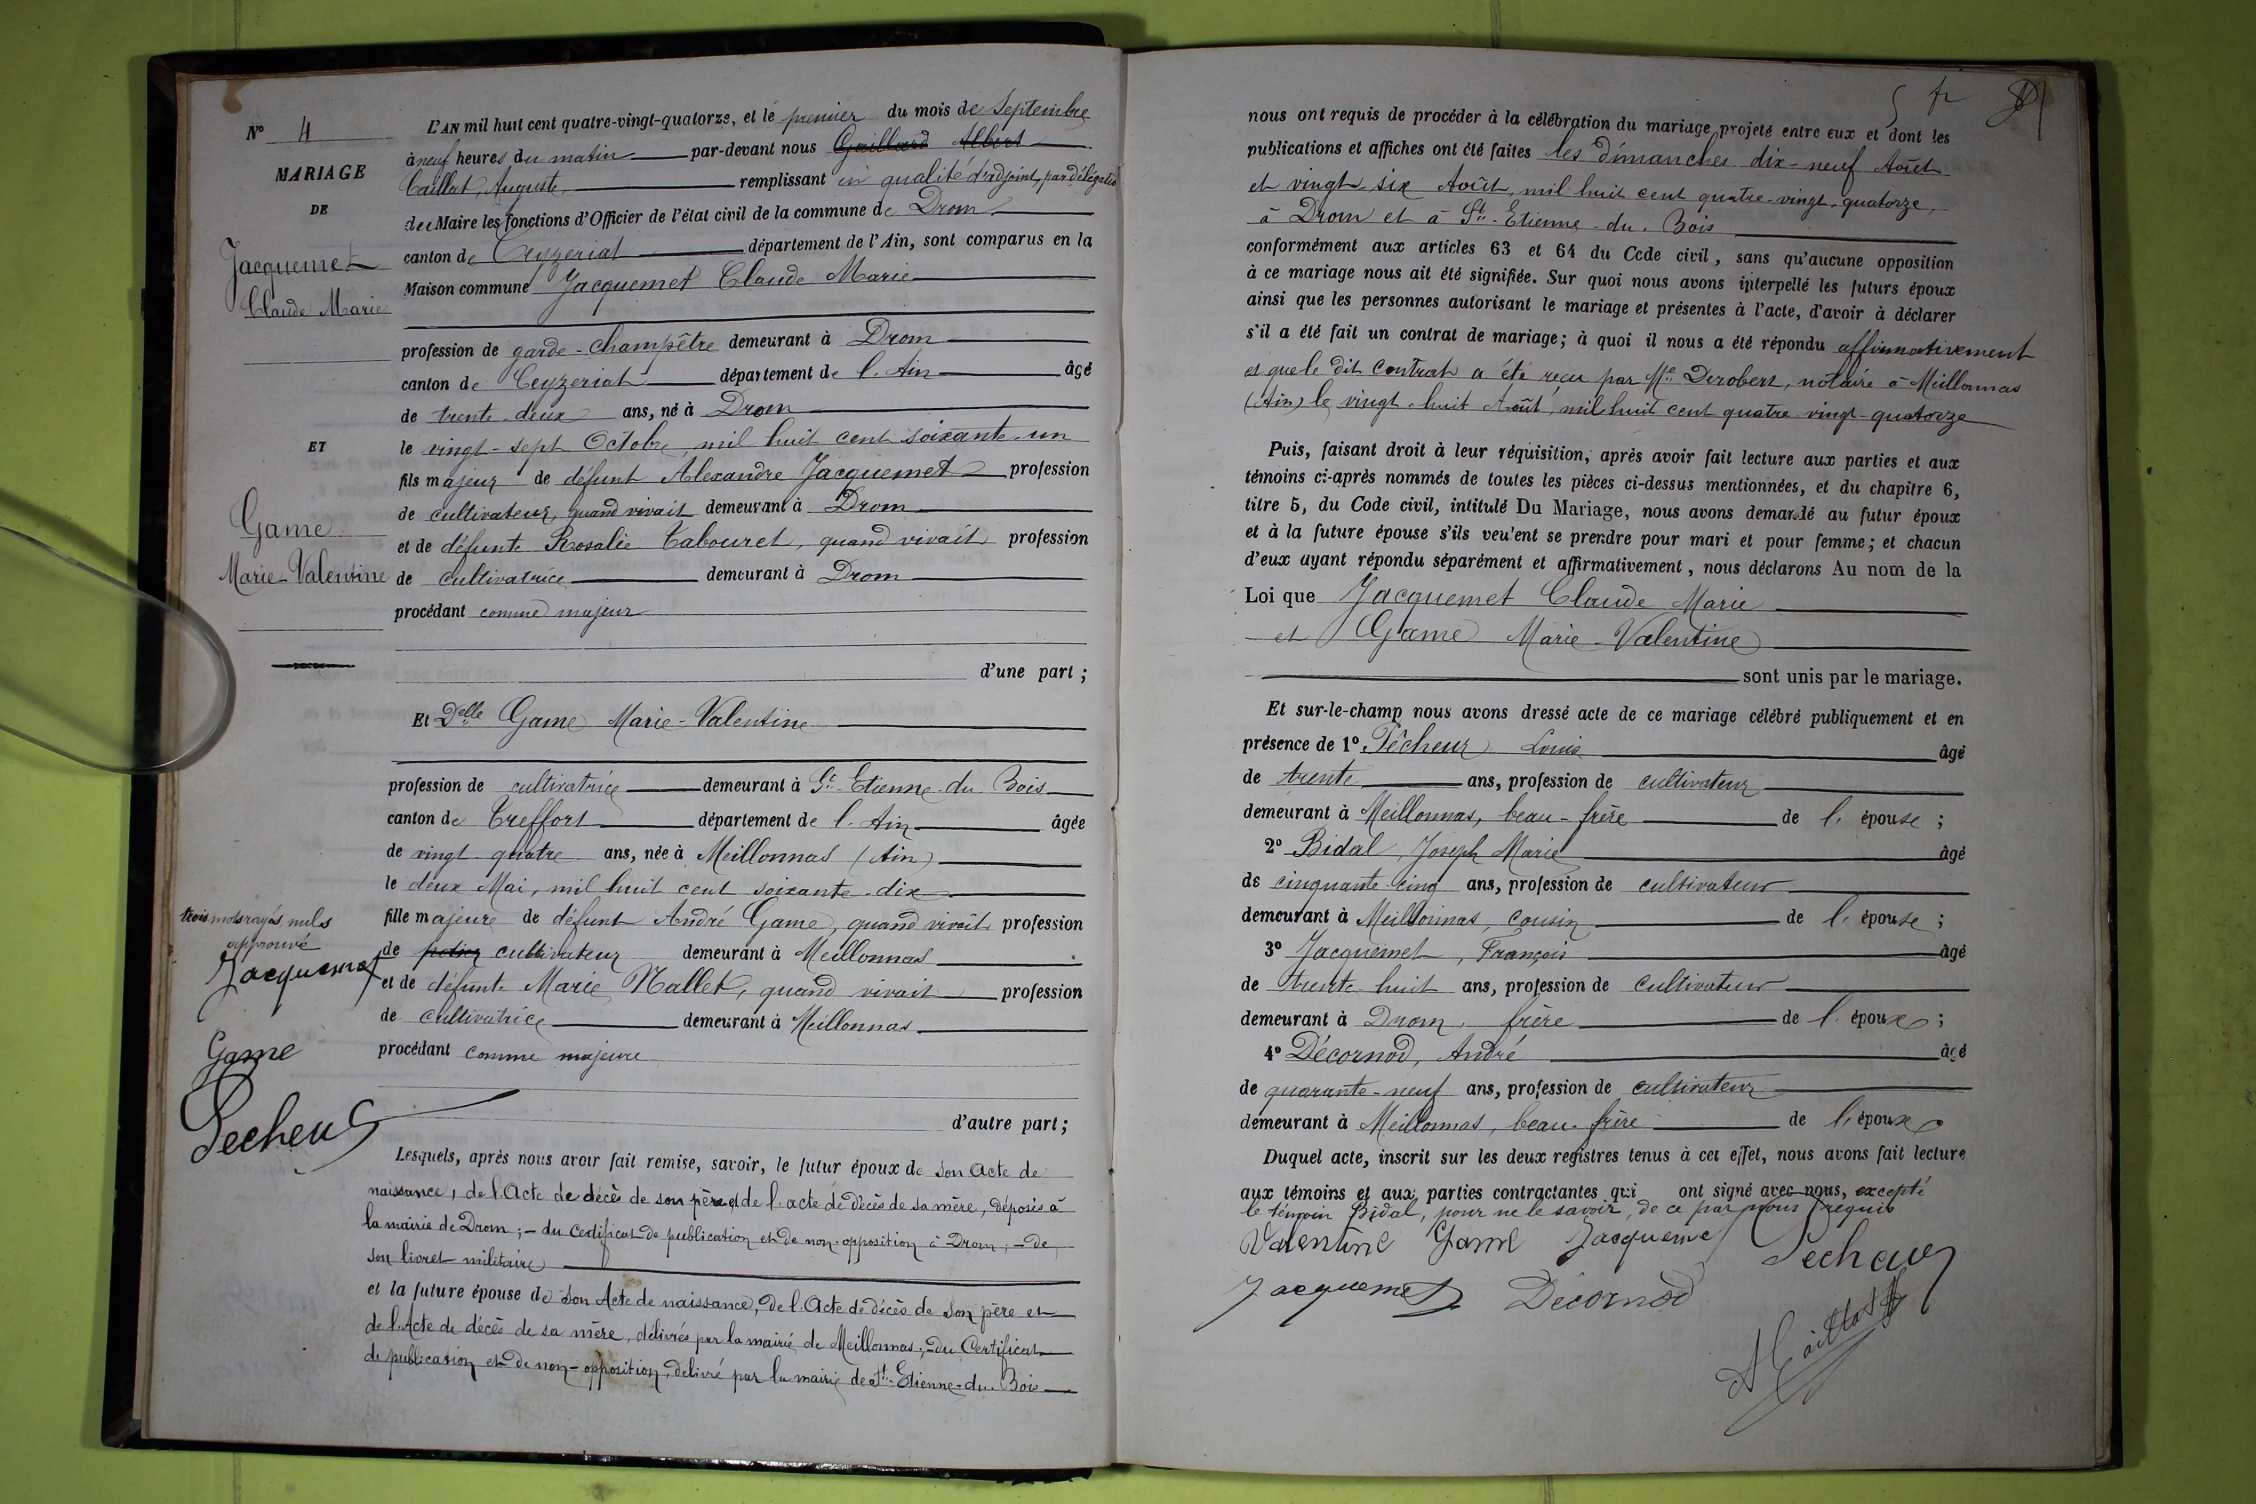 N° 4
MARIAGE
DE
Jacquemet
Claude Marie
ET
Game
Marie-Valentine
trois mots rayés nuls
approuvé
Jacquemet
Game
Pecheur
L'AN mil huit cent quatre-vingt-quatorze, et le premier du mois de Septembre
à neuf heures du matin par-devant nous Gaillard Albert
Caillat, Auguste, remplissant en qualité d'adjoint, par délégation
du Maire les fonctions d'Officier de l'état civil de la commune de Drom
canton de Ceyzeriat département de l'Ain, sont comparus en la
Maison commune Jacquemet Claude Marie
profession de garde-champêtre demeurant à Drom
canton de Ceyzeriat département de l'Ain âgé
de trente-deux ans, né à Drom
le vingt-sept Octobre, mil huit cent soixante-un
fils majeur de défunt Alexandre Jacquemet profession
de cultivateur, quand vivait demeurant à Drom
et de défunte Rosalie Tabouret, quand vivait profession
de cultivatrice demeurant à Drom
procédant comme majeur
d'une part ;
Et Delle Game Marie-Valentine
profession de cultivatrice demeurant à St-Etienne-du Bois
canton de Treffort département de l'Ain âgée
de vingt-quatre ans, née à Meillonnas (Ain)
le deux Mai, mil huit cent soixante-dix
fille majeure de défunt André Game, quand vivait profession
de cultivateur demeurant à Meillonnas
et de défunte Marie Mallet, quand vivait profession
de cultivatrice demeurant à Meillonnas
procédant comme majeure
d'autre part ;
Lesquels, après nous avoir fait remise, savoir, le futur époux de son acte de
naissance, de l'Acte de décès de son père et de l'acte de décès de sa mère, déposés à
la mairie de Drom ; - du certificat de publication et de non-opposition à Drom ; - de
son livret militaire
et la future épouse de son Acte de naissance, de l'Acte de décès de son père et
de l'Acte de décès de sa mère, délivrés par la mairie de Meillonnas ; - du Certificat
de publication et de non-opposition, délivré par la mairie de St-Etienne-du-Bois
5 fr
nous ont requis de procéder à la célébration du mariage projeté entre eux et dont les
publications et affiches ont été faites les dimanches dix-neuf Août
et vingt-six Août, mil huit cent quatre-vingt-quatorze,
à Drom et à St-Etienne-du-Bois
conformément aux articles 63 et 64 du Code civil, sans qu'aucune opposition
à ce mariage nous ait été signifiée. Sur quoi nous avons interpellé les futurs époux
ainsi que les personnes autorisant le mariage et présentes à l'acte, d'avoir à déclarer
s'il a été fait un contrat de mariage ; à quoi il nous a été répondu affirmativement
et que le dit contrat a été reçu par Me Derobert, notaire à Meillonnas
(Ain) le vingt-huit Août, mil huit cent quatre-vingt-quatorze
Puis, faisant droit à leur réquisition, après avoir fait lecture aux parties et aux
témoins ci-après nommés de toutes les pièces ci-dessus mentionnées, et du chapitre 6,
titre 5, du Code civil, intitulé Du Mariage, nous avons demandé au futur époux
et à la future épouse s'ils veulent se prendre pour mari et pour femme ; et chacun
d'eux ayant répondu séparément et affirmativement, nous déclarons Au nom de la
Loi que Jacquemet Claude Marie
et Game Marie-Valentine
sont unis par le mariage.
Et sur-le-champ nous avons dressé acte de ce mariage célébré publiquement et en
présence de 1° Pêcheur Louis âgé
de trente ans, profession de cultivateur
demeurant à Meillonnas, beau-frère de l'épouse ;
2° Bidal, Joseph Marie âgé
de cinquante-cinq ans, profession de cultivateur
demeurant à Meillonnas, cousin de l'épouse ;
3° Jacquemet, François âgé
de trente-huit ans, profession de cultivateur
demeurant à Drom, frère de l'époux ;
4° Décornod, André âgé
de quarante-neuf ans, profession de cultivateur
demeurant à Meillonnas, beau-frère de l'époux
Duquel acte, inscrit sur les deux registres tenus à cet effet, nous avons fait lecture
aux témoins et aux parties contractantes qui ont signé avec nous, excepté
le témoin Bidal, pour ne le savoir, de ce par nous requis
Valentine Game Jacquemet Pecheur
Jacquemet Décornod
A Caillat